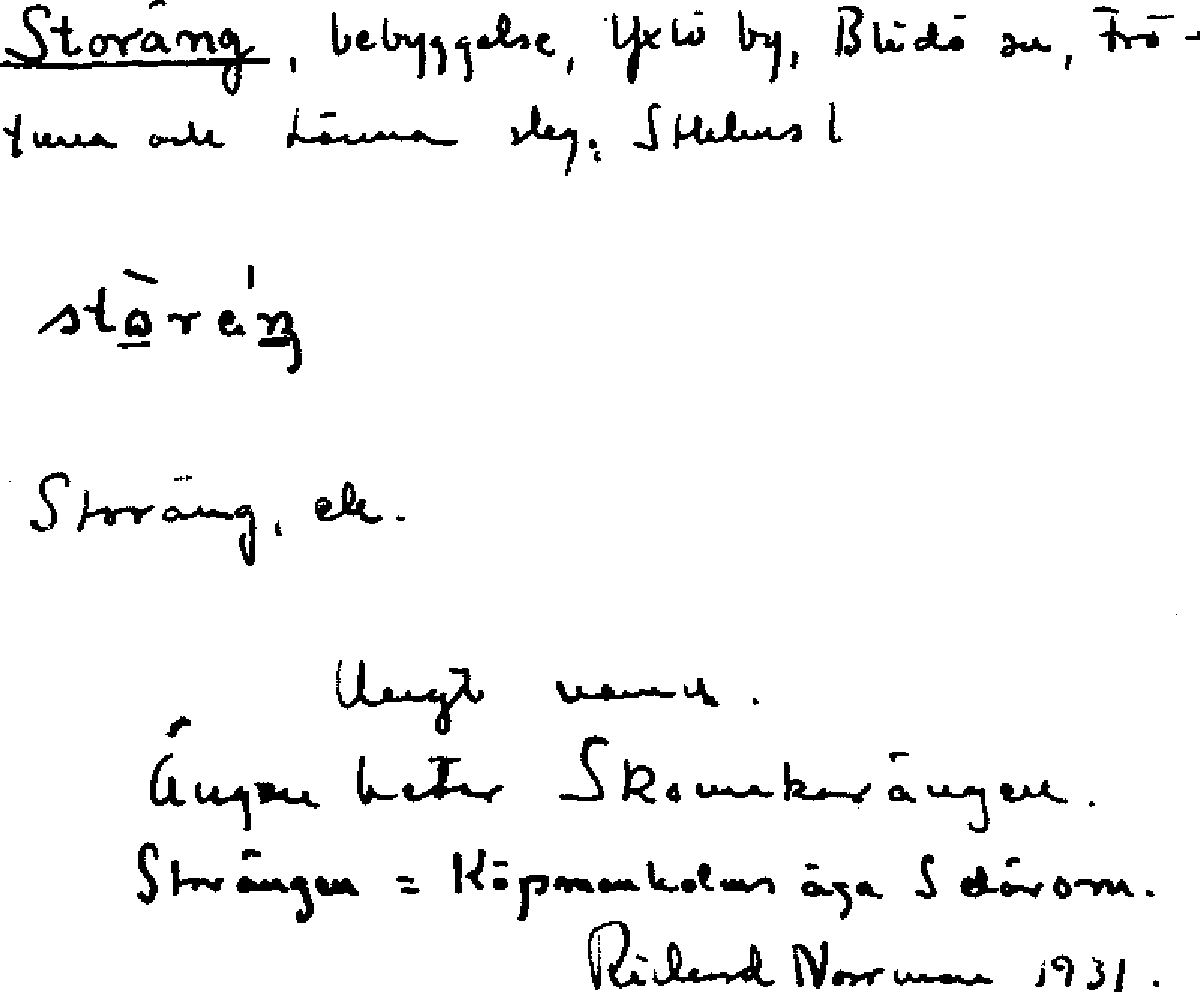 Storäng, bebyggelse, Yxlö by, Blidö sn, Frö-
tuna och Länna slg, Sthlms l
stò̱réŋ
Storäng, ek.
Ungt namn.
Ängen heter Skomakarängen.
Storängen = Köpmanholms äga S därom.
Rikard Norrman 1931.